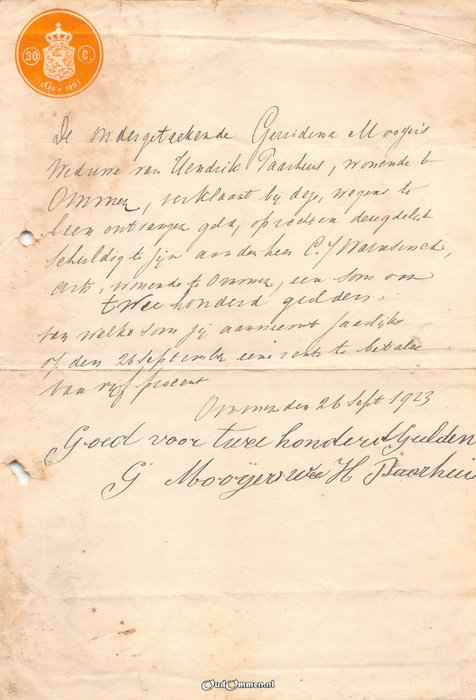 30 C.
De ondergeteekende Gerridina Mooyers
Weduwe van Hendrik Paarhuis, wonende te
Ommen, verklaart bij deze, wegens te
leen ontvangen geld, oprecht en deugdelijk
schuldig te zijn aan den heer C. J. Warnsinck,
arts, wonende te Ommen, een som van
twee honderd gulden.
van welke som zij aanneemt jaarlijks
op den 26 september eene rente te betalen
van vijf procent
Ommen den 26 Sept 1923
Goed voor twee honderd Gulden
G Mooijer wee H Paarhuis
OudOmmen.nl